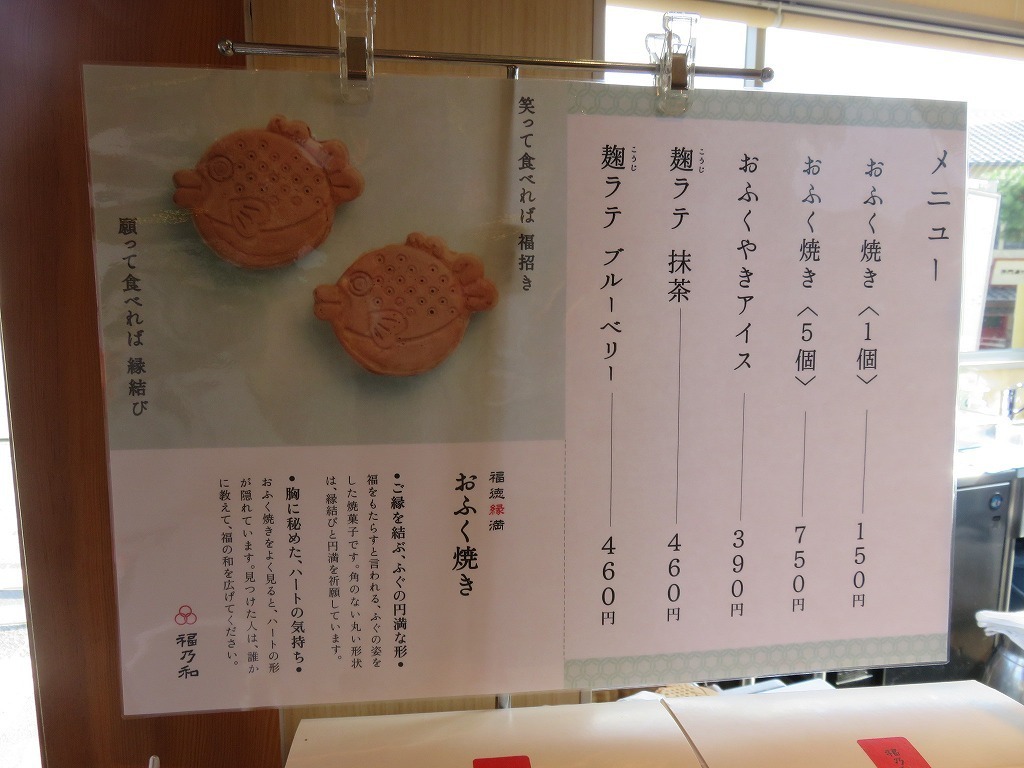 メニュー
おふく焼き〈1個〉 150円
おふく焼き〈5個〉 750円
おふくやきアイス 390円
麹ラテ 抹茶 460円
こうじ
麹ラテ ブルーベリー 460円
こうじ
笑って食べれば 福招き
願って食べれば 縁結び
福徳縁満
おふく焼き
•ご縁を結ぶ、ふぐの円満な形•
福をもたらすと言われる、ふぐの姿を
した焼菓子です。角のない丸い形状
は、縁結びと円満を祈願しています。
•胸に秘めた、ハートの気持ち•
おふく焼きをよく見ると、ハートの形
が隠れています。見つけた人は、誰か
に教えて、福の和を広げてください。
福乃和
福乃和